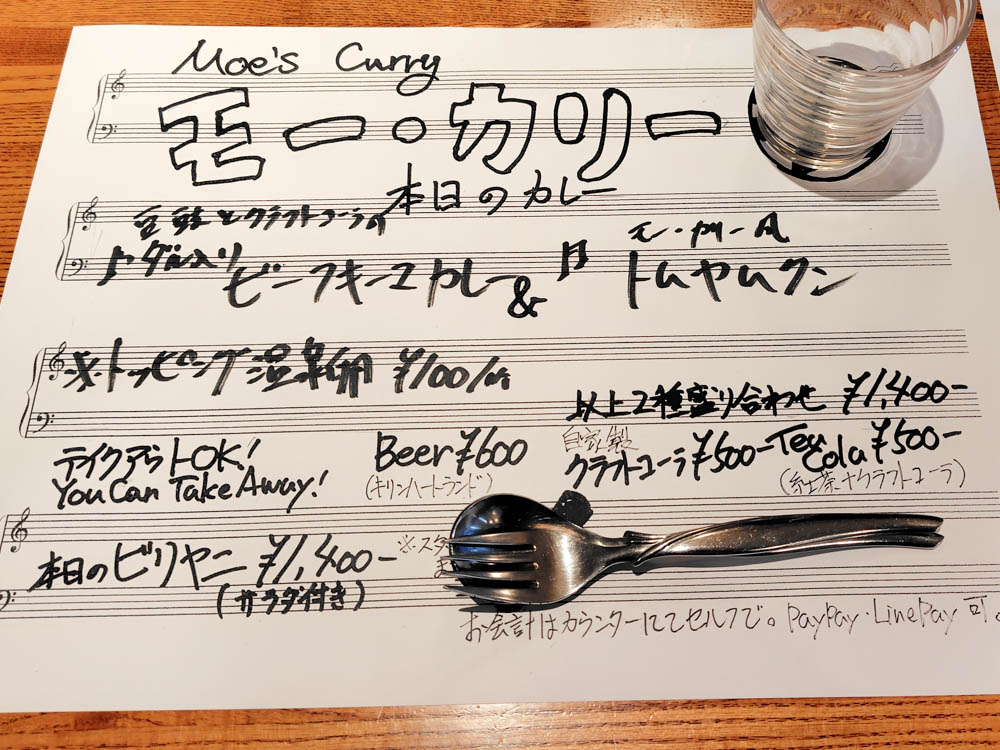 Moe's Curry
モー・カリー
本日のカレー
豆豉とクラフトコーラの
ダル入り
ビーフキーマカレー &
モー・カリー風
トムヤムクン
※トッピング 温泉卵 ¥100/
以上2種盛り合わせ ¥1,400-
テイクアウトOK!
You Can Take Away!
Beer ¥600
(キリンハートランド)
自家製
クラフトコーラ ¥500-
Tea Cola ¥500-
(紅茶+クラフトコーラ)
本日のビリヤニ ¥1,400-
(サラダ付き)
※スタ
お会計はカウンターにてセルフで。PayPay・LinePay 可。